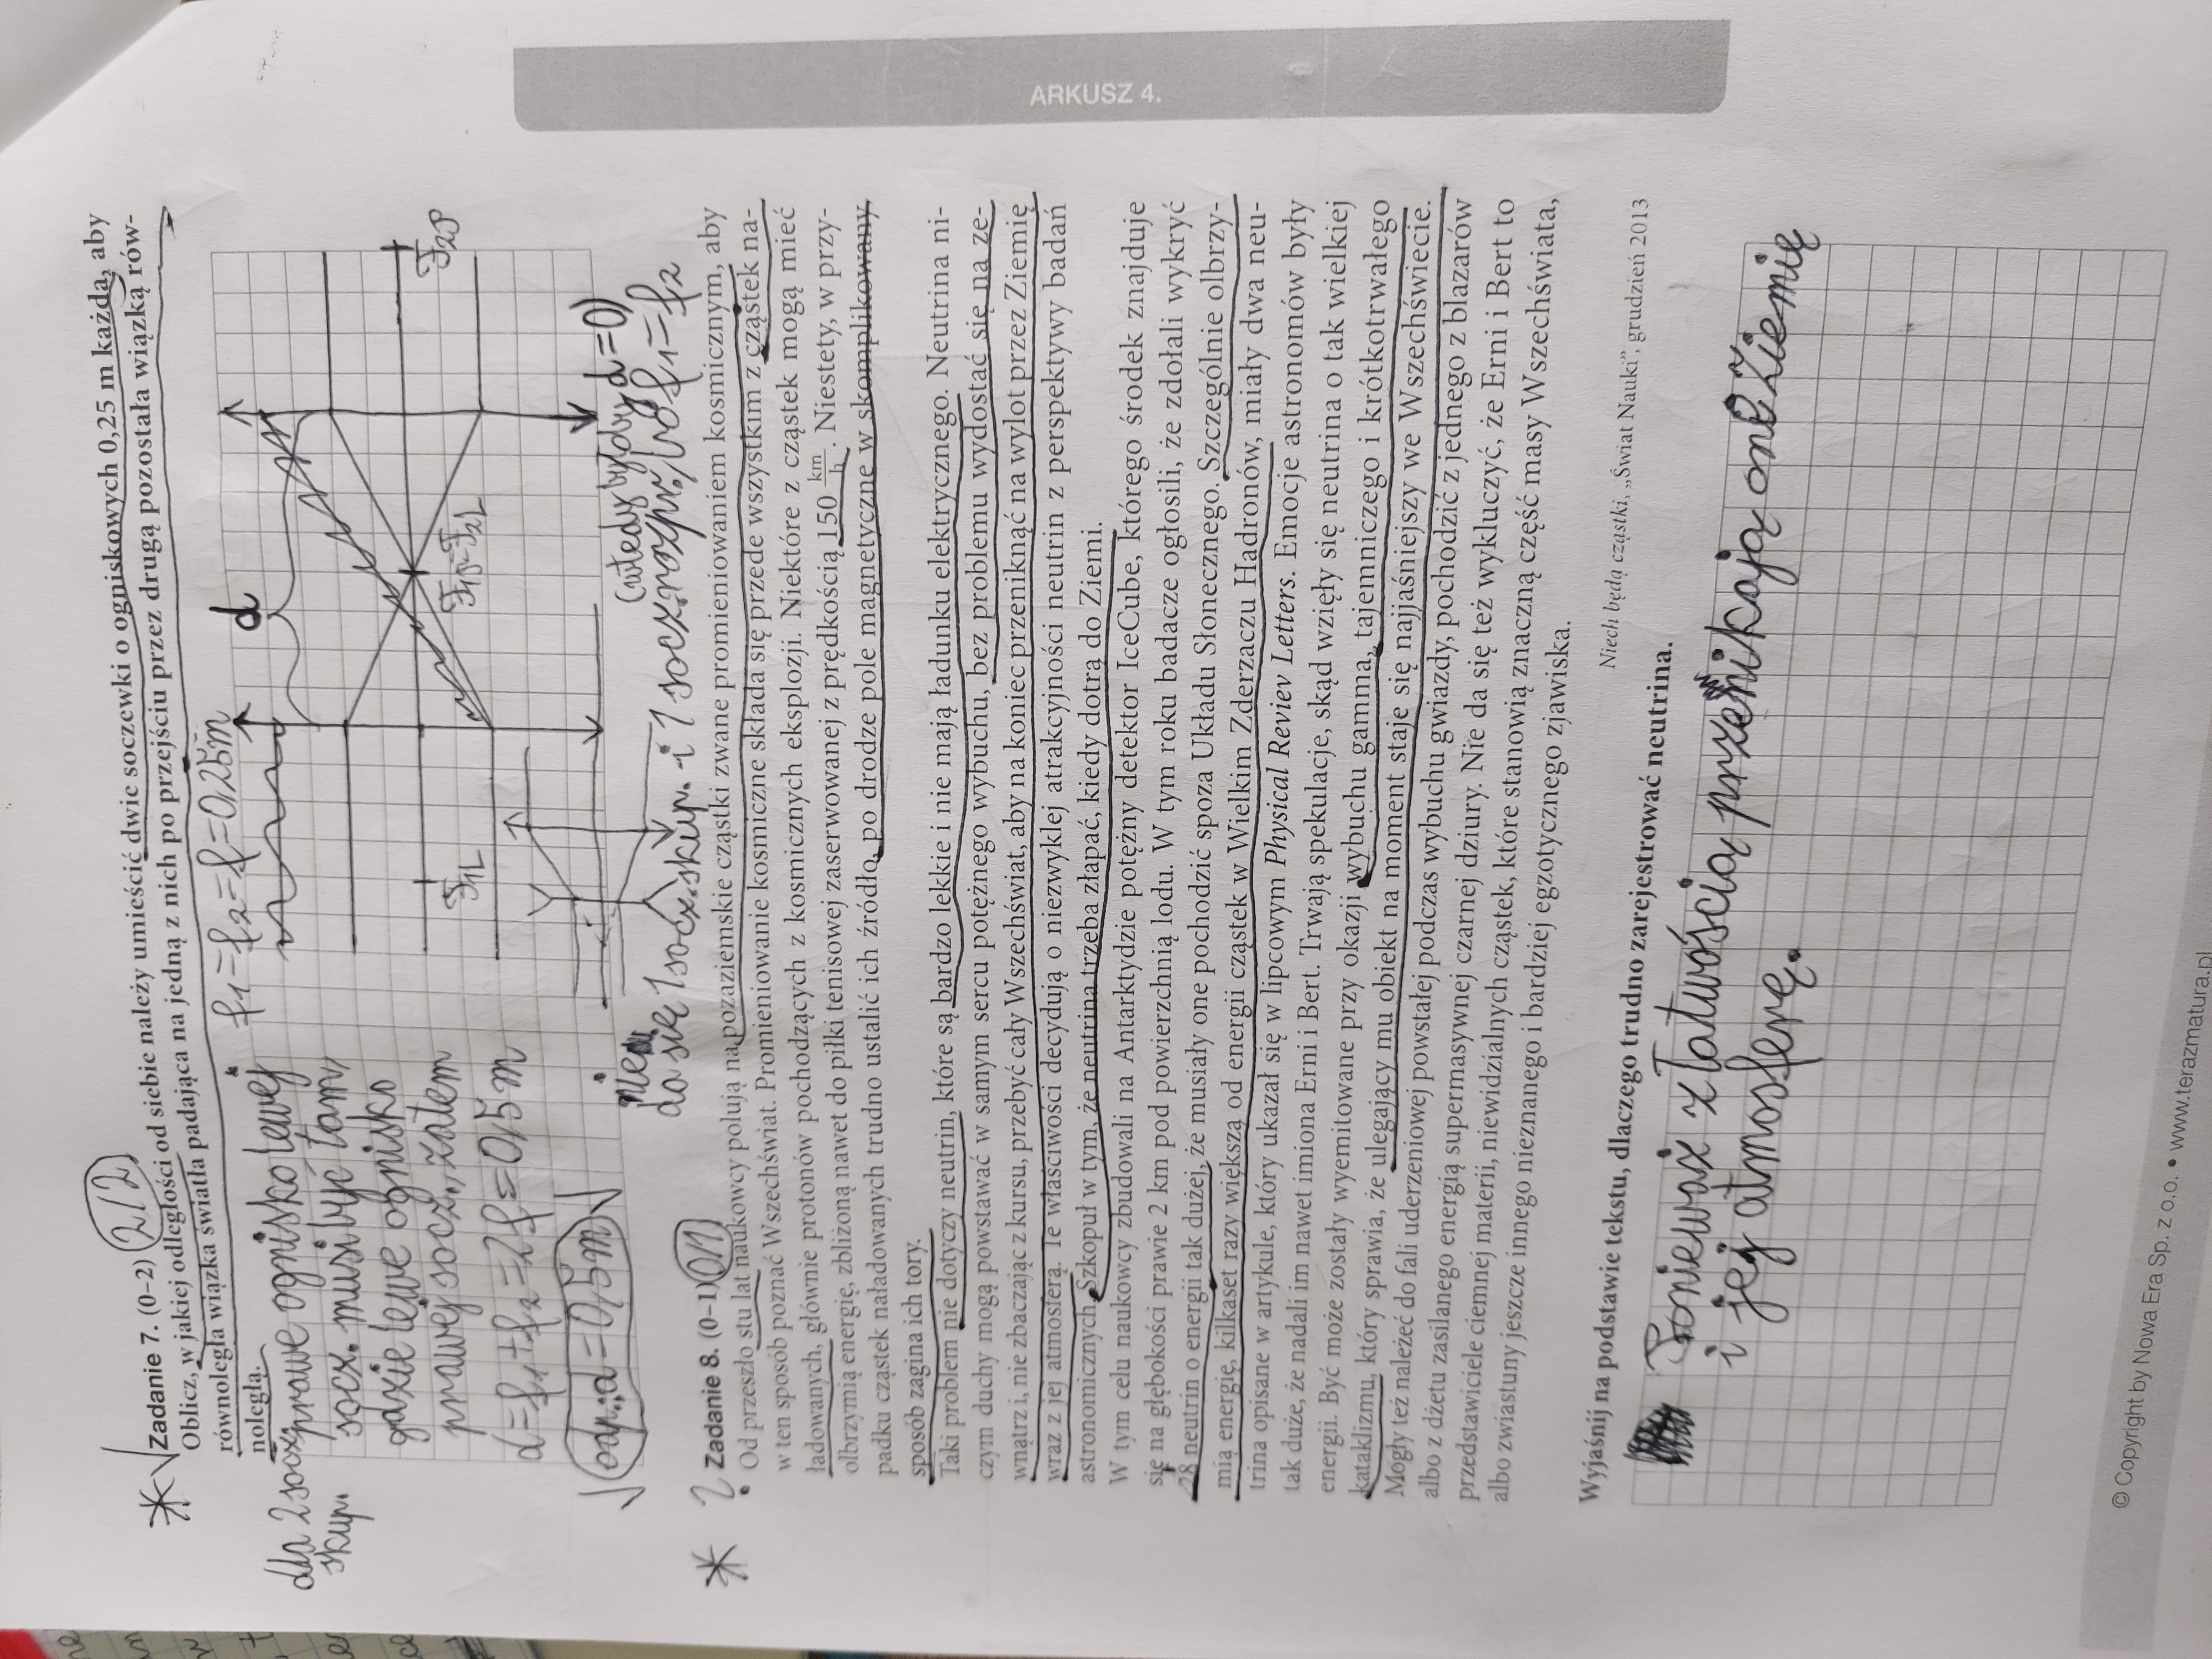 ARKUSZ 4.
Zadanie 7. (0–2) 2/2
Oblicz, w jakiej odległości od siebie należy umieścić dwie soczewki o ogniskowych 0,25 m każda, aby
równoległa wiązka światła padająca na jedną z nich po przejściu przez drugą pozostała wiązką rów-
noległą.
f1=f2=f=0,25m
d
dla 2 socz. skup.
prawe ognisko lewej
socz. musi być tam,
gdzie lewe ognisko
prawej socz., zatem
d=f1+f2=2f=0,5m
odp.: d=0,5m
F1L
F1P=F2L
F2P
(wtedy byłoby d=0)
nie da się 1 socz. skup. i 1 socz. rozpr., bo f1=f2
? Zadanie 8. (0–1) 0/1
Od przeszło stu lat naukowcy polują na pozaziemskie cząstki zwane promieniowaniem kosmicznym, aby
w ten sposób poznać Wszechświat. Promieniowanie kosmiczne składa się przede wszystkim z cząstek na-
ładowanych, głównie protonów pochodzących z kosmicznych eksplozji. Niektóre z cząstek mogą mieć
olbrzymią energię, zbliżoną nawet do piłki tenisowej zaserwowanej z prędkością 150 km/h. Niestety, w przy-
padku cząstek naładowanych trudno ustalić ich źródło, po drodze pole magnetyczne w skomplikowany
sposób zagina ich tory.
Taki problem nie dotyczy neutrin, które są bardzo lekkie i nie mają ładunku elektrycznego. Neutrina ni-
czym duchy mogą powstawać w samym sercu potężnego wybuchu, bez problemu wydostać się na ze-
wnątrz i, nie zbaczając z kursu, przebyć cały Wszechświat, aby na koniec przeniknąć na wylot przez Ziemię
wraz z jej atmosferą. Te właściwości decydują o niezwykłej atrakcyjności neutrin z perspektywy badań
astronomicznych. Szkopuł w tym, że neutrina trzeba złapać, kiedy dotrą do Ziemi.
W tym celu naukowcy zbudowali na Antarktydzie potężny detektor IceCube, którego środek znajduje
się na głębokości prawie 2 km pod powierzchnią lodu. W tym roku badacze ogłosili, że zdołali wykryć
28 neutrin o energii tak dużej, że musiały one pochodzić spoza Układu Słonecznego. Szczególnie olbrzy-
mią energię, kilkaset razy większą od energii cząstek w Wielkim Zderzaczu Hadronów, miały dwa neu-
trina opisane w artykule, który ukazał się w lipcowym Physical Reviev Letters. Emocje astronomów były
tak duże, że nadali im nawet imiona Erni i Bert. Trwają spekulacje, skąd wzięły się neutrina o tak wielkiej
energii. Być może zostały wyemitowane przy okazji wybuchu gamma, tajemniczego i krótkotrwałego
kataklizmu, który sprawia, że ulegający mu obiekt na moment staje się najjaśniejszy we Wszechświecie.
Mogły też należeć do fali uderzeniowej powstałej podczas wybuchu gwiazdy, pochodzić z jednego z blazarów
albo z dżetu zasilanego energią supermasywnej czarnej dziury. Nie da się też wykluczyć, że Erni i Bert to
przedstawiciele ciemnej materii, niewidzialnych cząstek, które stanowią znaczną część masy Wszechświata,
albo zwiastuny jeszcze innego nieznanego i bardziej egzotycznego zjawiska.
Niech będą cząstki, „Świat Nauki”, grudzień 2013
Wyjaśnij na podstawie tekstu, dlaczego trudno zarejestrować neutrina.
Ponieważ z łatwością przenikają one Ziemię
i jej atmosferę.
© Copyright by Nowa Era Sp. z o.o. • www.terazmatura.pl